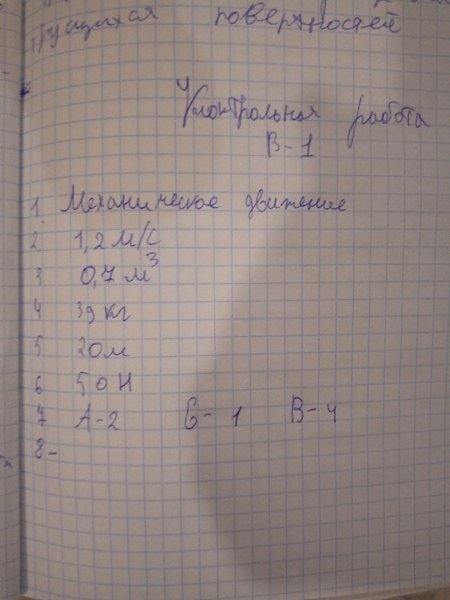 трущихся поверхностей
Контрольная работа
В-1
1. Механическое движение
2. 1,2 м/с
3 0,7 м³
4 39 кг
5 20м
6 50Н
7 А-2 Б-1 В-4
8-